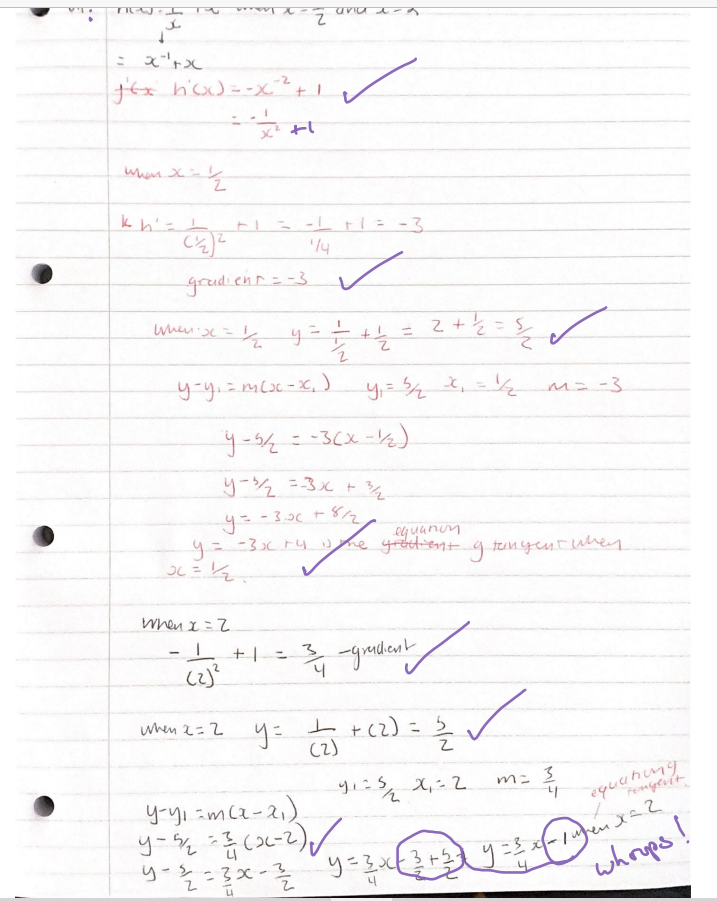 h(x) = 1/x + x when x = 1/2 and x = 2
= x⁻¹ + x
f'(x h'(x) = -x⁻² + 1
= -1/x² + 1
when x = 1/2
h' = 1/(1/2)² + 1 = -1/1/4 + 1 = -3
gradient = -3
when x = 1/2 y = 1/1/2 + 1/2 = 2 + 1/2 = 5/2
y - y₁ = m(x - x₁) y₁ = 5/2 x₁ = 1/2 m = -3
y - 5/2 = -3(x - 1/2)
y - 5/2 = -3x + 3/2
y = -3x + 8/2
equation
y = -3x + 4 is the gradient of tangent when
x = 1/2.
when x = 2
- 1/(2)² + 1 = 3/4 - gradient
when x = 2 y = 1/(2) + (2) = 5/2
y₁ = 5/2 x₁ = 2 m = 3/4
equation of
tangent
y - y₁ = m(x - x₁)
y - 5/2 = 3/4 (x - 2)
y - 5/2 = 3/4 x - 3/2 y = 3/4 x - 3/2 + 5/2 = y = 3/4 x - 1 when x = 2
whoops!